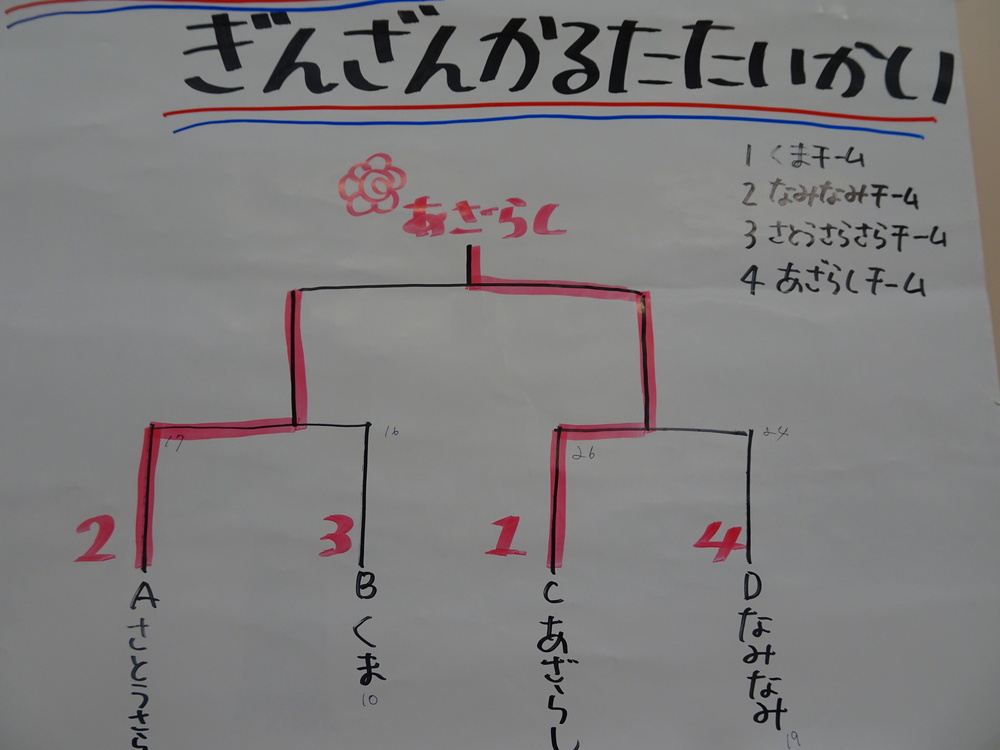 ぎんざんかるたたいかい
1 くまチーム
2 なみなみチーム
3 さとうさらさらチーム
4 あざらしチーム
あざらし
17
16
26
24
2
3
1
4
A
さとうさら
B
くま
10
C
あざらし
D
なみなみ
19